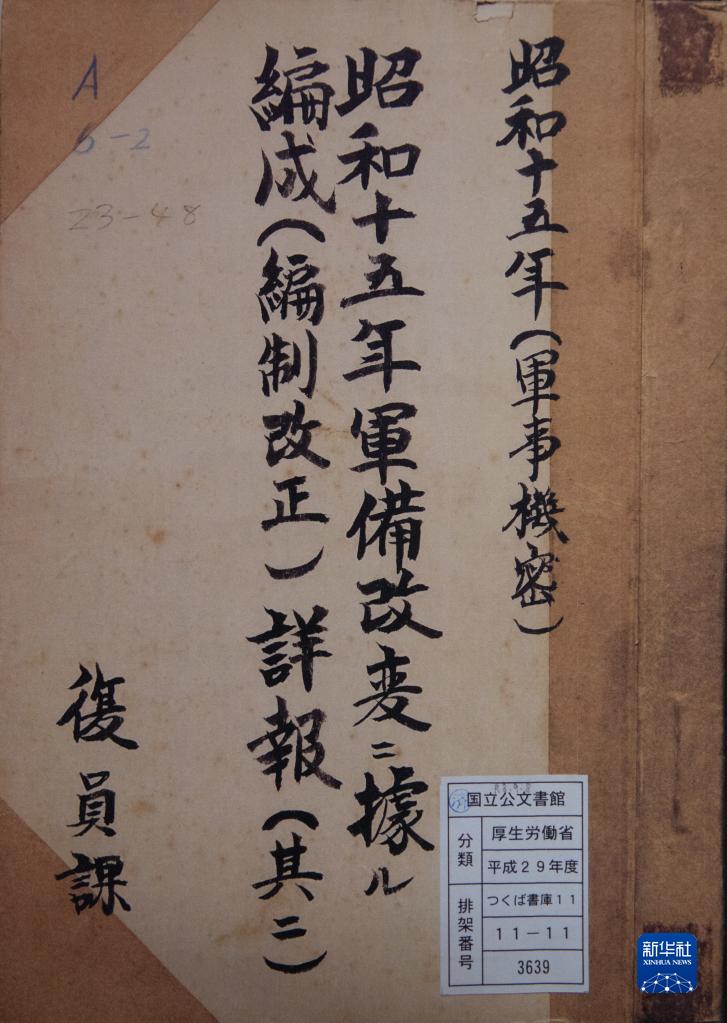 昭和十五年（軍事機密）
昭和十五年軍備改変ニ據ル
編成（編制改正）詳報（其二）
復員課
A
6-2
23-48
国立公文書館
分類
厚生労働省
平成29年度
排架番号
つくば書庫11
11-11
3639
新华社
XINHUA NEWS